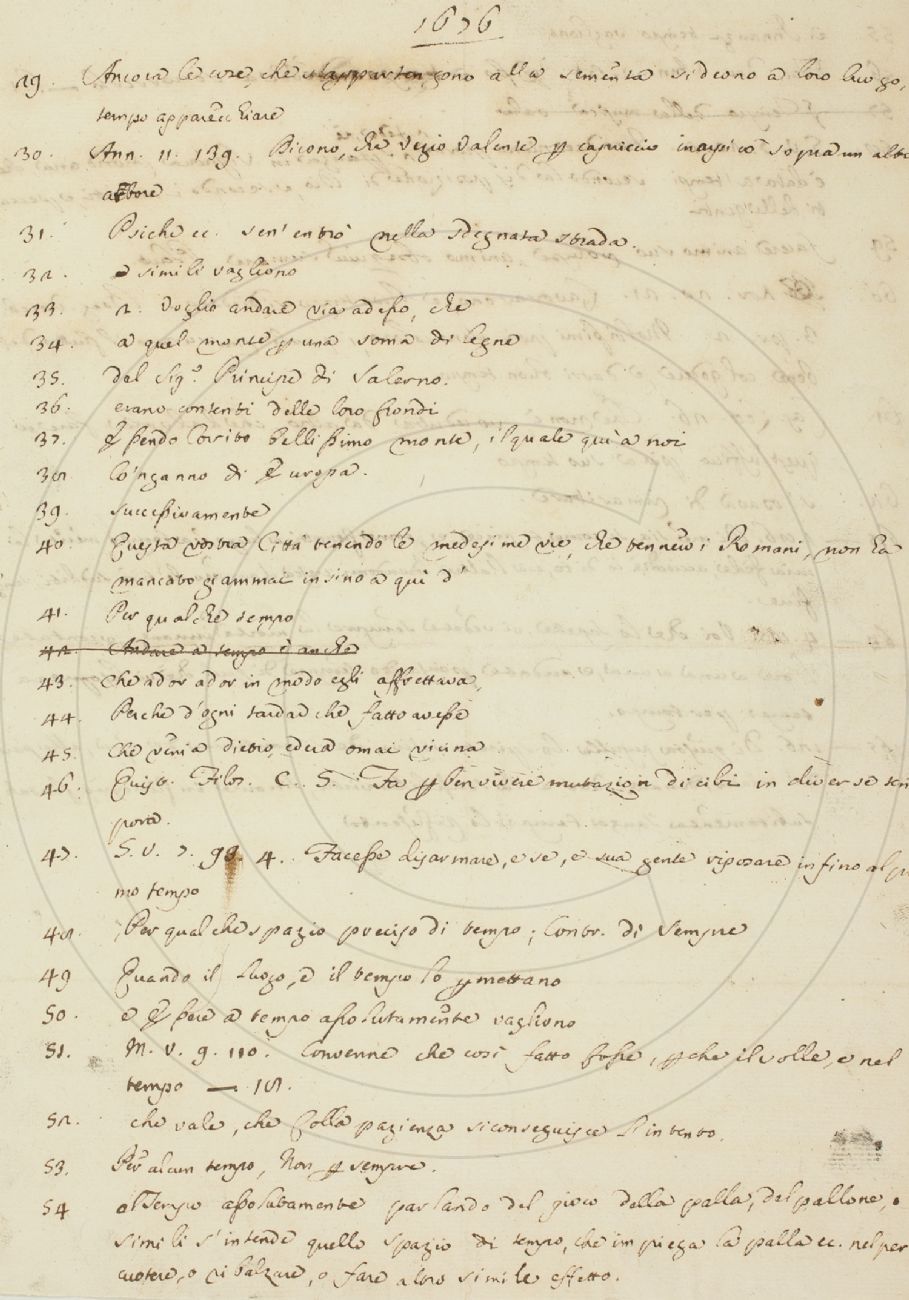 1676
29. Ancora le cose, che s'appartengono alla sementa si deono a loro luogo,
tempo apparecchiare
30. Ann. 11. 139. Dicono, che Vezio Valente ꝑ capriccio inarpicò sopra un alto
arbore
31. Psiche ec. sen' entrò nella sdegnata strada.
32. e simili vagliono
33. 2. Voglio andare via adesso, che
34. a quel monte ꝑ una soma di legne
35. del Sig.e Principe di Salerno.
36. erano contenti delle loro frondi
37. Essendo Corsito bellissimo monte, il quale quì a noi
38. lo'nganno di Europa.
39. successivamente
40. Questa vostra Città tenendo le medesime vie, che tennero i Romani, non ha
mancato giammai insino a quì d'
41. Per qualche tempo
42. Andare a tempo è anche
43. Che ador ador in modo egli affrettava,
44. Perche d'ogni tardar che fatto avesse
45. Che venia dietro, ed era omai vicina
46. Quist. Filos. C. S. Fa ꝑ ben vivere mutazion di cibi in diverse tem
pora.
47. S. V. 7. 99. 4. Facesse disarmare, e se, e sua gente riposare infino al pri
mo tempo
48. Per qualche spazio preciso di tempo; Contr. di Sempre
49 Quando il luogo, e il tempo lo ꝑmettano
50. e Essere a tempo assolutamente vagliono
51. M. V. 9. 110. Convenne che così fatto fosse, ꝑche il volle, e nel
tempo — 18.
52. che vale, che Colla pazienza si conseguisce l'intento.
53. Per alcun tempo, Non ꝑ sempre.
54 Tempo assolutamente parlando del gioco della palla, del pallone, e
simili s'intende quello spazio di tempo, che impiega la palla ec. nel per
cuotere, o ribalzare, o fare altro simile effetto.